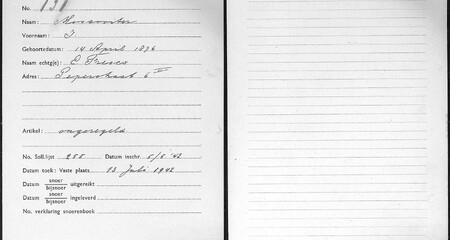 No. 131
Naam: Mossounter
Voornaam: I
Geboortedatum: 14 April 1896
Naam echtg(e): E Fresco
Adres: Peperstraat 6 II
Artikel: ongeregeld
No. Soll.lijst 288 Datum inschr. 5/5 '42
Datum toek: Vaste plaats 13 Juli 1942
Datum snoer uitgereikt
bijsnoer
Datum snoer ingeleverd
bijsnoer
No. verklaring snoerenboek: